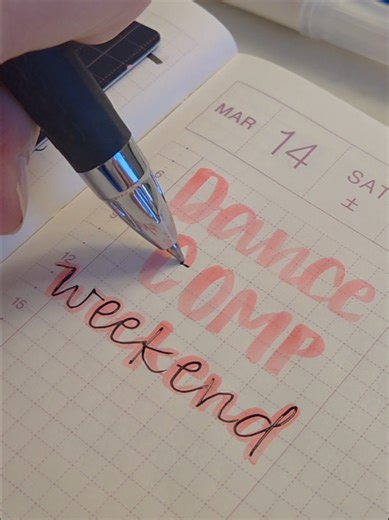 MAR 14 SAT
土
6
Dance
COMP
12
weekend
15